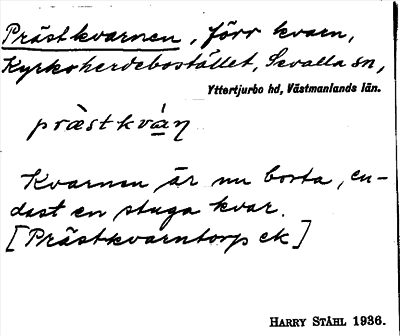 Prästkvarnen, förr kvarn,
Kyrkoherdebostället, Sevalla sn,
Yttertjurbo hd, Västmanlands län.
præ̀stkvá̠ṇ
Kvarnen är nu borta, en-
dast en stuga kvar.
[Prästkvarntorp ek]
HARRY STÅHL 1936.